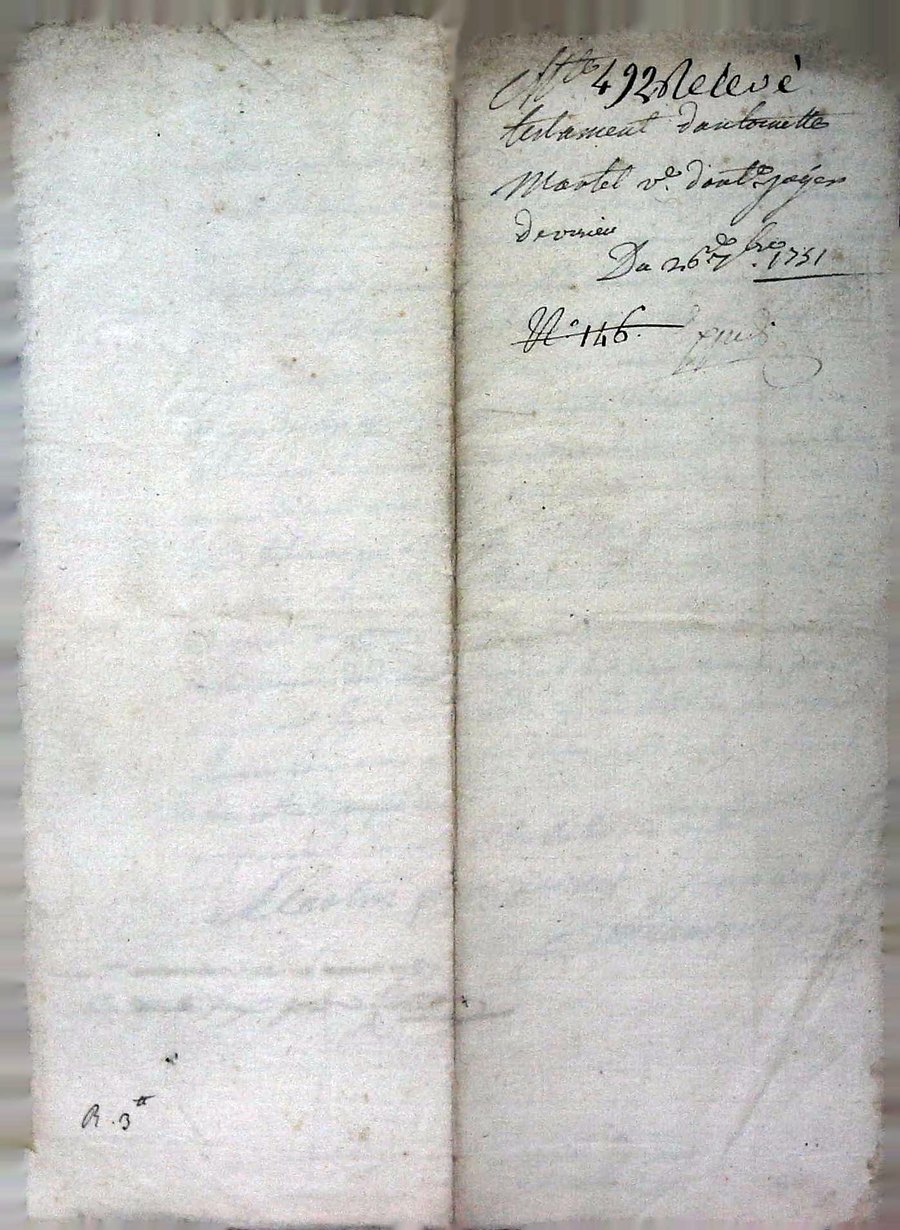 492 Relevé
testament dantoinette
Martel ve. dant.e
de virieu
Du 26e. 7bre. 1751
N° 146.
R. 3tt